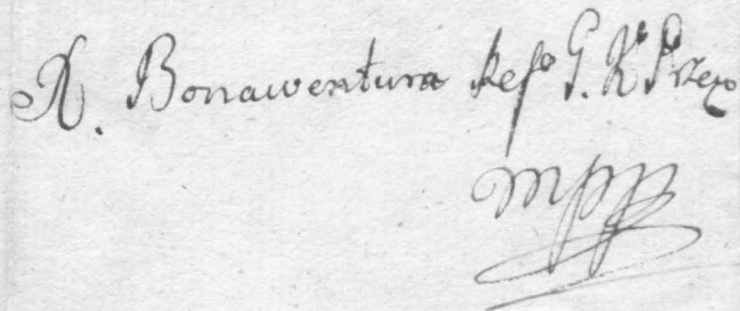 X. Bonawentura Ref° G. K° Przez
mpp